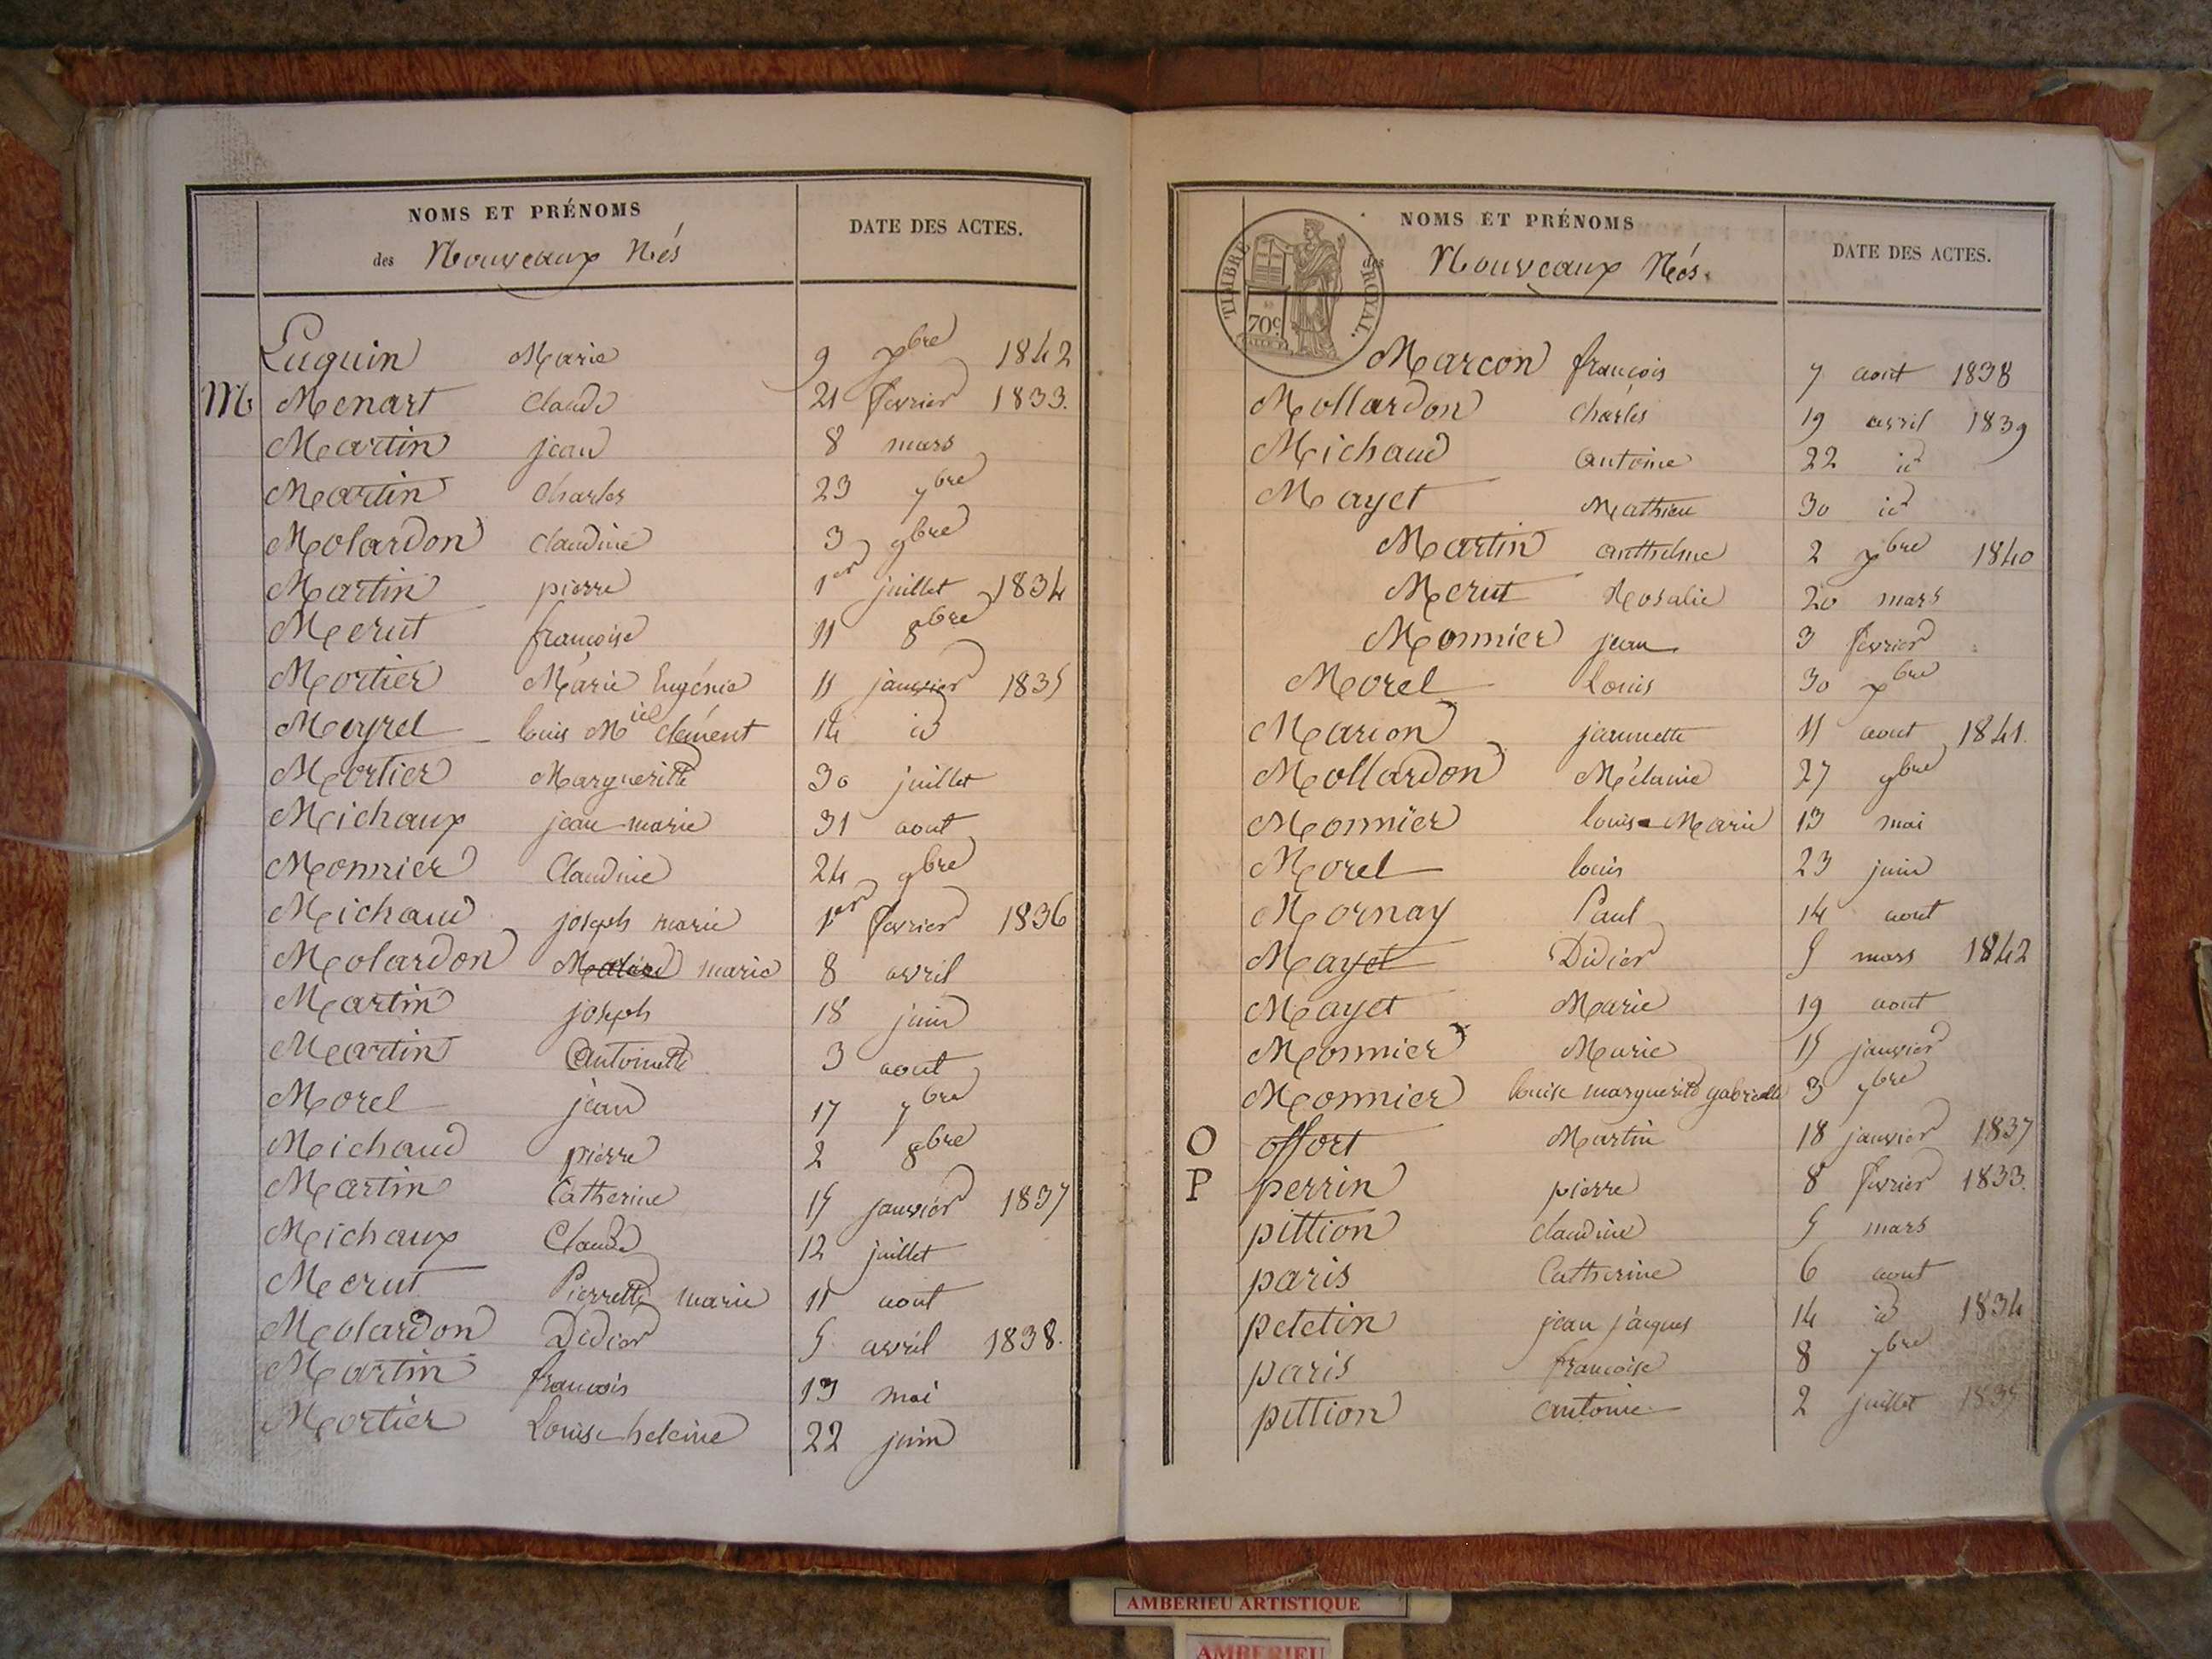 NOMS ET PRÉNOMS
des Nouveaux Nés
DATE DES ACTES.
Luquin Marie 9 Xbre 1842
M Menart Claude 21 fevrier 1833.
Martin jean 8 mars
Martin Charles 23 7bre
Molardon Claudine 3 9bre
Martin pierre 1er juillet 1834
Merut françoise 11 8bre
Mortier Marie Eugénie 15 janvier 1835
Meyrel louis Mie Clément 14 id
Mortier Margueritte 30 juillet
Michaux jean marie 31 aout
Monnier Claudine 24 9bre
Michaud joseph marie 1er fevrier 1836
Molardon marie 8 avril
Martin joseph 18 juin
Martin Antoinette 3 aout
Morel jean 17 7bre
Michaud pierre 2 8bre
Martin Catherine 15 janvier 1837
Michaux Claude 12 juillet
Merut Pierrette marie 11 aout
Molardon Didier 5 avril 1838.
Martin françois 13 mai
Mortier Louise heleine 22 juin
NOMS ET PRÉNOMS
des Nouveaux Nés.
DATE DES ACTES.
TIMBRE ROYAL.
70c
Marcon françois 7 aout 1838
Mollardon Charles 19 avril 1839
Michaud antoine 22 id
Mayet Mathieu 30 id
Martin anthelme 2 Xbre 1840
Merut Rosalie 20 mars
Monnier jean 3 fevrier
Morel Louis 30 Xbre
Marion jeannette 11 aout 1841.
Mollardon Mélanie 27 9bre
Monnier louise Marie 13 mai
Morel louis 23 juin
Mornay Paul 14 aout
Mayet Didier 5 mars 1842
Mayet Marie 19 aout
Monnier Marie 15 janvier
Monnier louise marguerite gabrielle 3 7bre
O offort Martin 18 janvier 1837
P perrin pierre 8 fevrier 1833.
pittion claudine 5 mars
paris Catherine 6 aout
peletin jean jacques 14 id 1834
paris françoise 8 7bre
pittion antoine 2 juillet 1835
AMBERIEU ARTISTIQUE
AMBERIEU